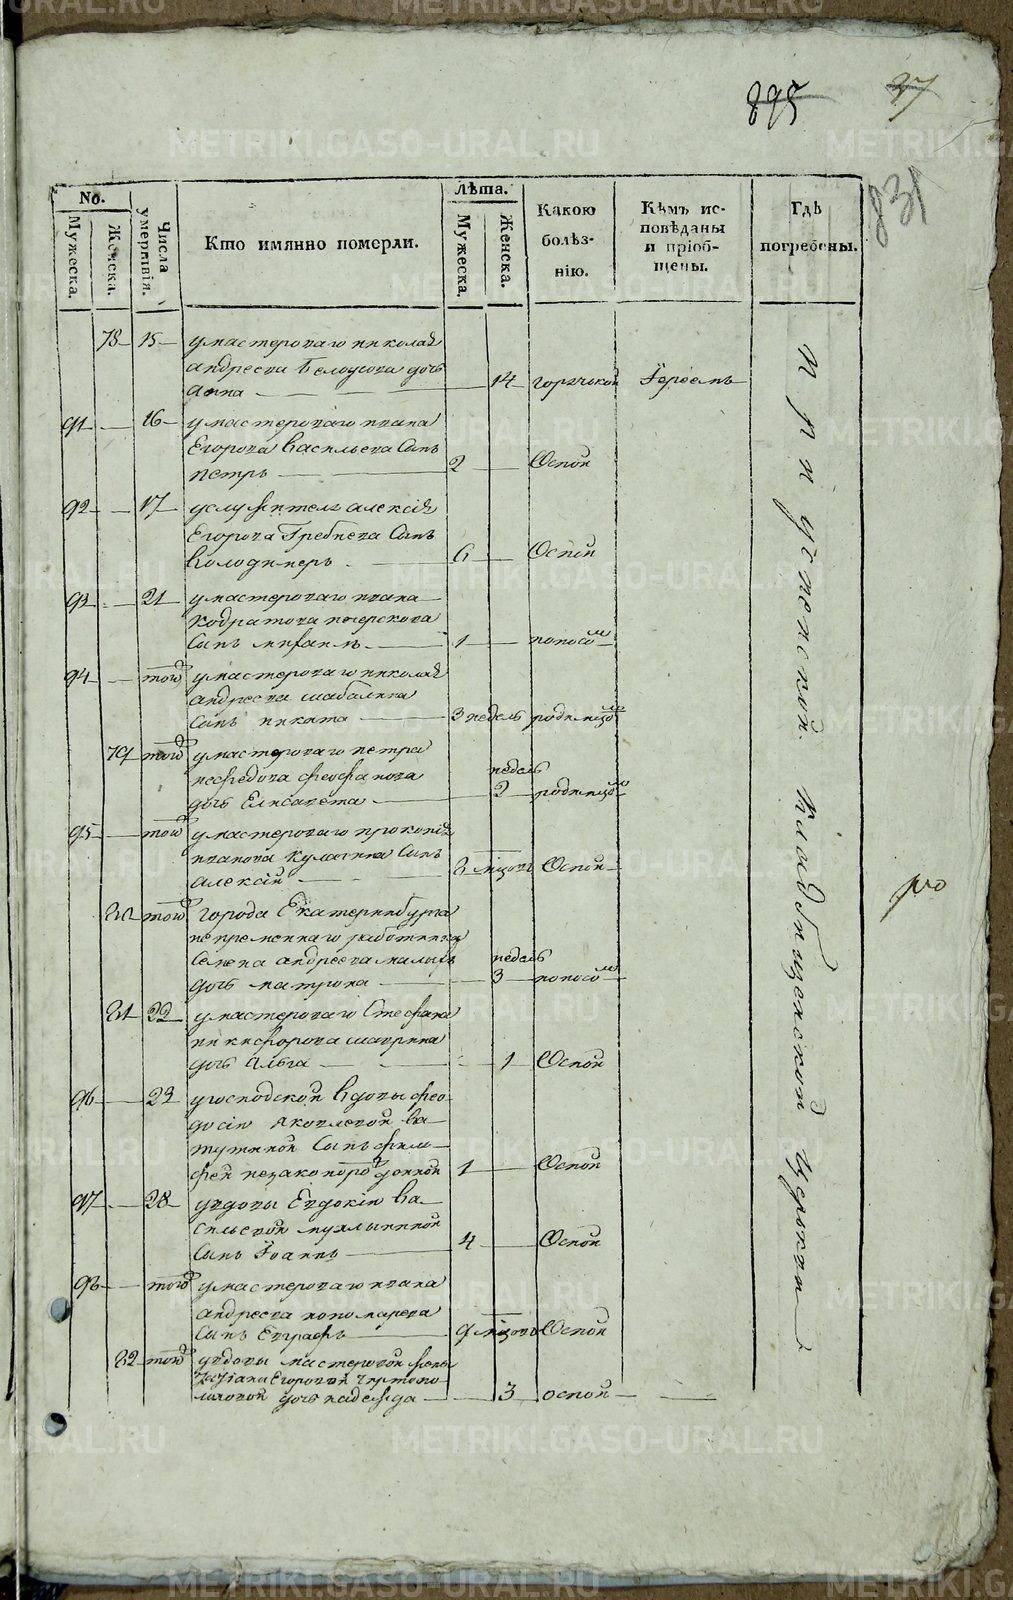 METRIKI.GASO-URAL.RU
895
37
831
No.
Мужеска.
Женска.
Числа умертвія.
Кто имянно померли.
Лѣта.
Мужеска.
Женска.
Какою болѣз-
нію.
Кѣмъ ис-
повѣданы
и пріоб-
щены.
Гдѣ
погребены.
78 15 умастероваго николая
андреева Белоусова дочь
анна 14 горячкой Іереемъ
91 16 умастероваго ивана
Егорова васильева сынъ
петръ 2 Оспой
92 17 услужителя алексія
Егорова Гребнева сынъ
володимеръ 6 Оспой
93 21 умастероваго ивана
кодратова
сынъ михаилъ 1 поносомъ
94 тогожъ умастероваго николая
андреева шабалина
сынъ никита 3 недель родимцомъ
79 тогожъ умастероваго петра
нефедова феофанова
дочь Елисавета недель 2 родимцомъ
95 тогожъ умастероваго прокопія
иванова кулакина сынъ
алексій 3 мцовъ Оспой
80 тогожъ города Екатеринбурга
непременнаго работника
Семена андреева малыхъ
дочь матрона недель 3 поносомъ
81 22 умастероваго Стефана
никифорова шаврина
дочь Ольга 1 Оспой
96 23 угосподской вдовы фео-
досіи яковлевой ва-
тутиной сынъ
незаконорожденной 1 Оспой
97 28 увдовы Евдокіи ва-
сильевой мухлыниной
сынъ Іоаннъ 4 Оспой
98 тогожъ умастероваго ивана
андреева пономарева
сынъ Евграфъ 9 мцовъ Оспой
82 тогожъ увдовы мастеровой жены
татіаны Егоровой
дочь надежда 3 оспой
При успенской кладбищенской церкви